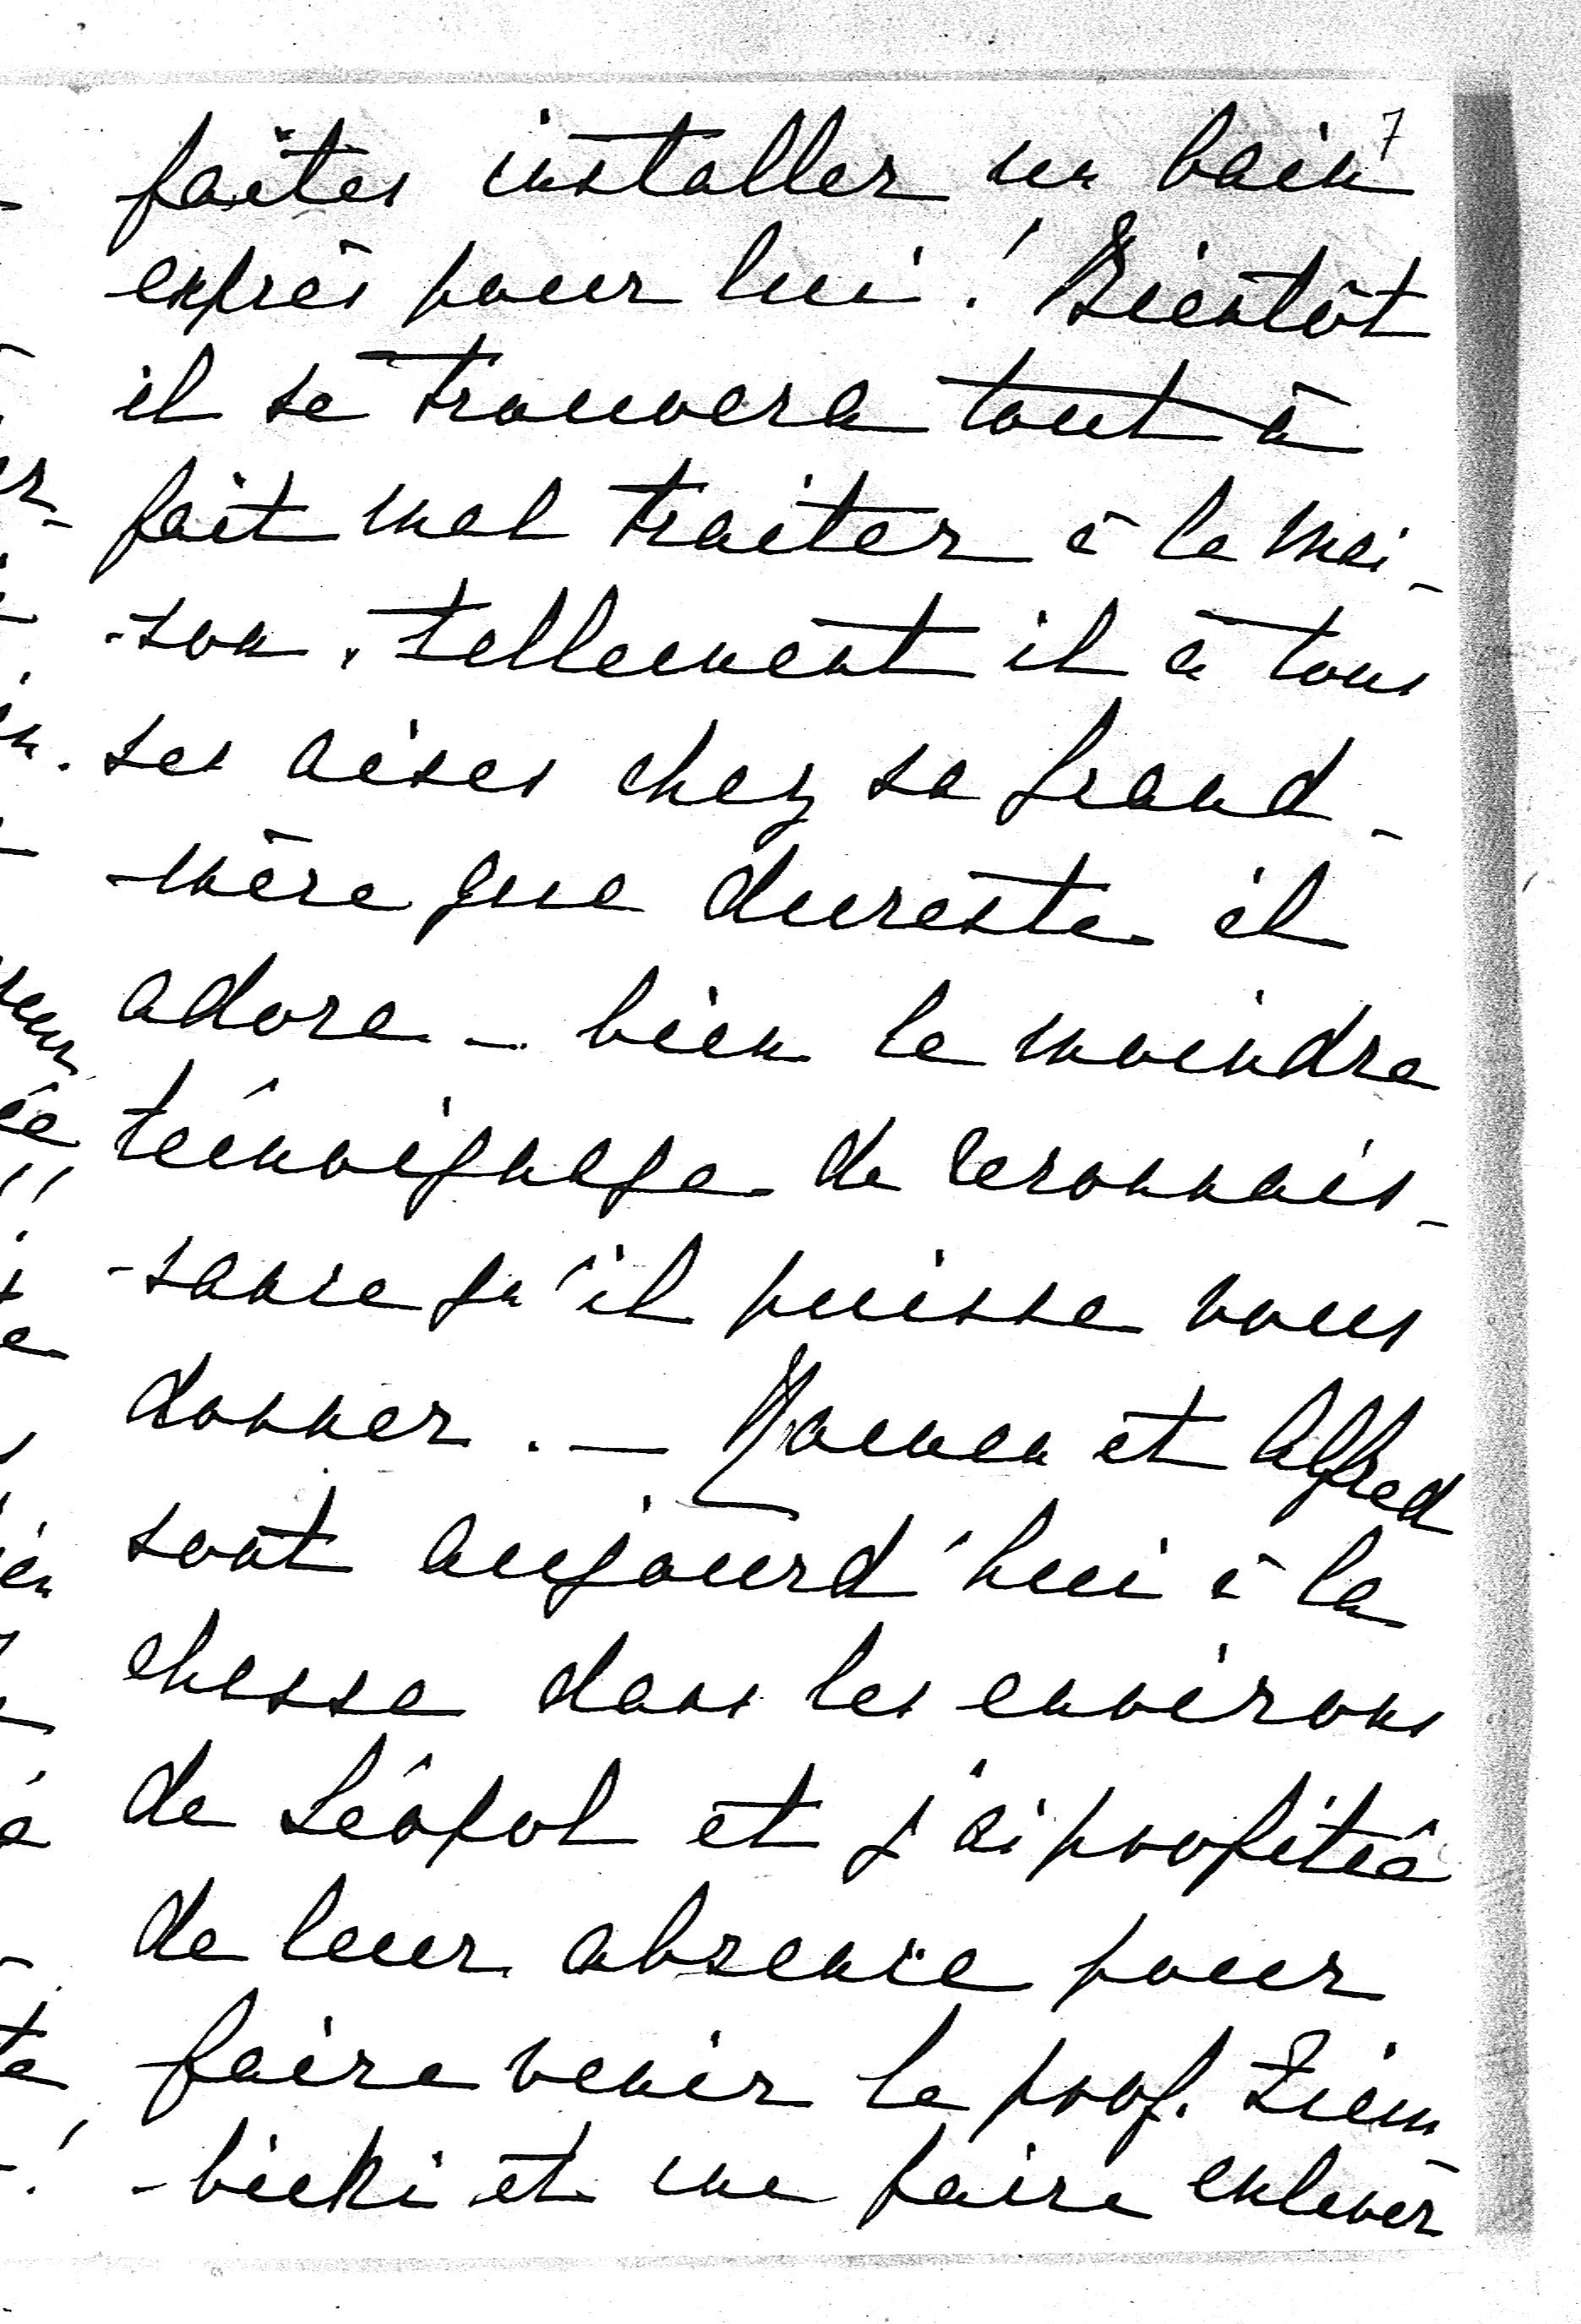 7
faites installer un bain
exprès pour lui! Bientôt
il se trouvera tout à
fait mal traiter à la mai-
-son, tellement il à tous
ses aises chez sa Grand-
-mère que dureste il
adore - bien le moindre
témoignage de reconnais-
-sance qu'il puisse vous
donner. — Roman et Alfred
sont aujourd'hui à la
chasse dans les environs
de Léopol et j'ai profité
de leur absence pour
faire venir le prof. Ziem
-bicki et me faire enlever